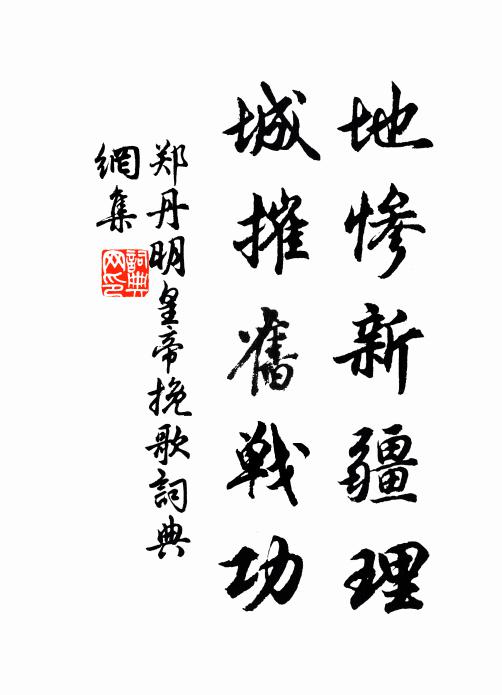 地惨新疆理
城摧舊戰功
郑丹明皇帝挽歌詞典
網集
詞典
网印